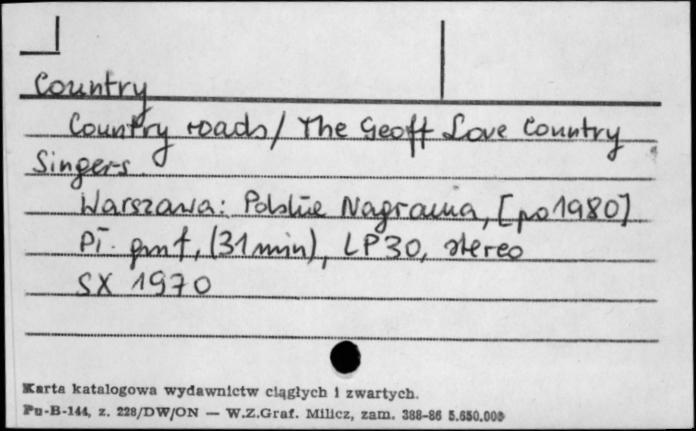 Country
Country roads / The Geoff Love Country
Singers
Warszawa: Polskie Nagrania, [po 1980]
Pł. gmf, (31 min), LP 30, stereo
SX 1970
Karta katalogowa wydawnictw ciągłych i zwartych.
Pu-B-144, z. 228/DW/ON — W.Z.Graf. Milicz, zam. 388-86 5.650.000